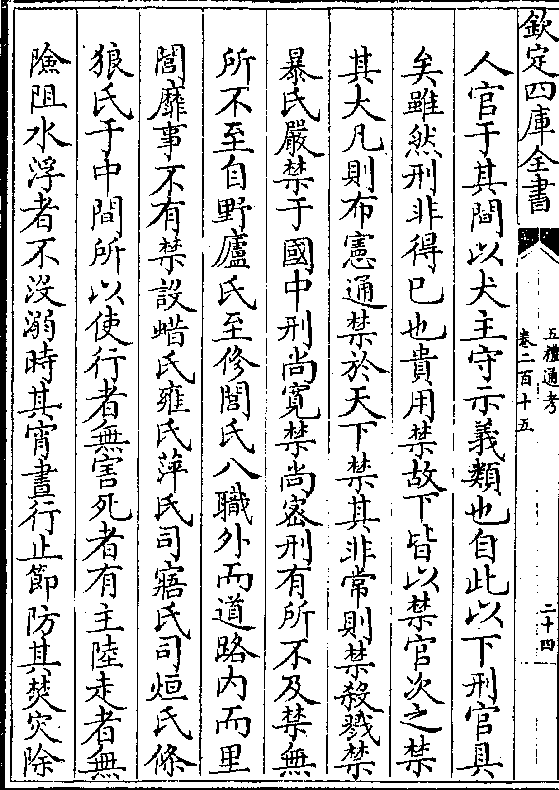 欽定四庫全書
五禮通考
卷二百十五
二十四
人官于其間以犬主守示義類也自此以下刑官具
矣雖然刑非得已也貴用禁故下皆以禁官次之禁
其大凡則布憲通禁於天下禁其非常則禁殺戮禁
暴氏嚴禁于國中刑尚寛禁尚宻刑有所不及禁無
所不至自野廬氏至修閭氏八職外而道路内而里
閭靡事不有禁設蜡氏雍氏萍氏司寤氏司烜氏條
狼氏于中間所以使行者無害死者有主陸走者無
險阻水浮者不没溺時其宵晝行止節防其焚灾除